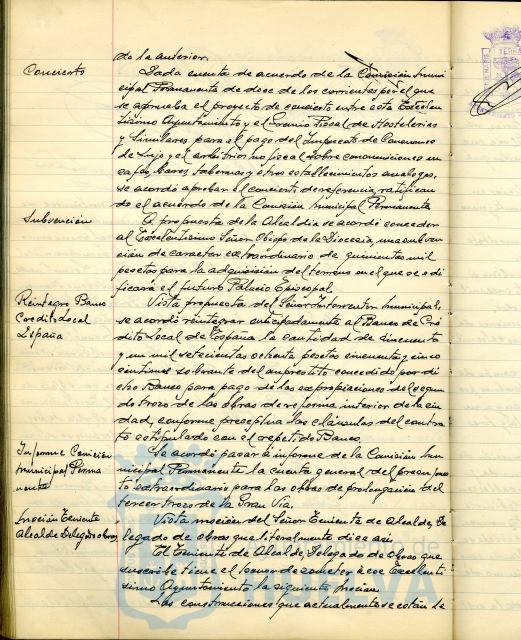 de la anterior.
Concierto
Dada cuenta de acuerdo de la Comisión Muni
cipal Permanente de doce de los corrientes por el que
se aprueba el proyecto de concierto entre este Excelen
tísimo Ayuntamiento y el Gremio Fiscal de Hostelerias
y Similares para el pago del Impuesto de Consumos
de Lujo y el arbitrio no fiscal sobre consumiciones en
cafés, bares, tabernas y otros establecimientos analogos,
se acordó aprobar el concierto de referencia, ratifican
do el acuerdo de la Comisión Municipal Permanente
Subvención
A propuesta de la Alcaldia se acordó conceder
al Excelentisimo Señor Obispo de la Diocesis, una subven
ción de caracter extraordinario de quinientas mil
pesetas para la adquisición del terreno en el que se edi
ficará el futuro Palacio Episcopal.
Reintegro Banco
Credito Local
España
Vista propuesta del Señor Interventor Municipal,
se acordó reintegrar anticipadamente al Banco de Cré
dito Local de España la cantidad de cincuenta
y un mil setecientas ochenta pesetas cincuenta y cinco
centimos sobrante del emprestito concedido por di
cho Banco para pago de las expropiaciones del segun
do trozo de las obras de reforma interior de la ciu
dad, conforme preceptua las cláusulas del contra
to estipulado con el repetido Banco.
Informe Comisión
Municipal Perma
nente
Se acordó pasar a informe de la Comisión Mu
nicipal Permanente la cuenta general del presupues
to extraordinario para las obras de prolongación del
tercer trozo de la Gran Via.
Moción Teniente
Alcalde Delegado obras
Vista moción del Señor Teniente de Alcalde, De
legado de obras que literalmente dice asi:
El Teniente de Alcalde, Delegado de Obras que
suscribe tiene el honor de someter a ese Excelenti
simo Ayuntamiento la siguiente Mocion.
Las construcciones que actualmente se estan le